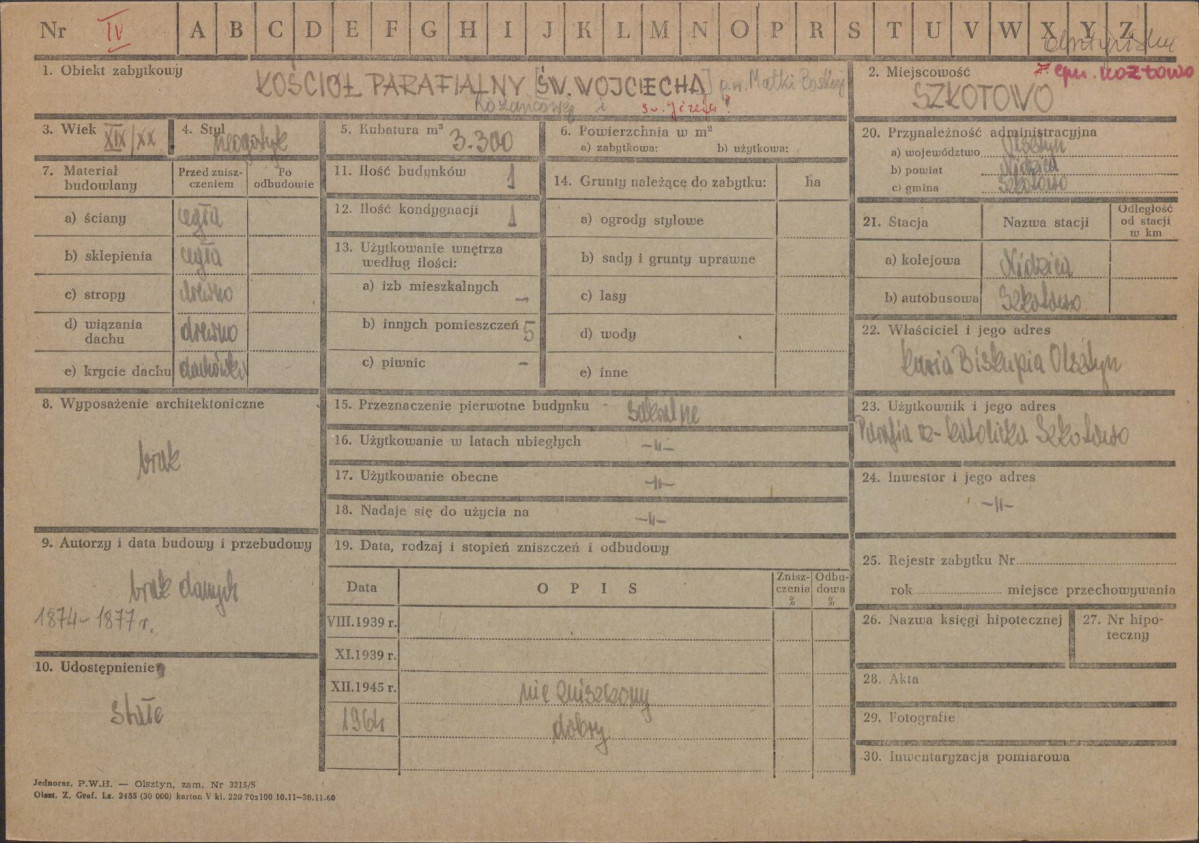 Nr IV A B C D E F G H I J K L M N O P R S T U V W X Y Z
1. Obiekt zabytkowy
KOŚCIÓŁ PARAFIALNY [ŚW. WOJCIECHA] p.w. Matki Boskiej
Różańcowej i św. Józefa!
2. Miejscowość
gm. Kozłowo
SZKOTOWO
3. Wiek XIX/XX
4. Styl neogotyk
5. Kubatura m³ 3.300
6. Powierzchnia w m²
a) zabytkowa: b) użytkowa:
7. Materiał budowlany
Przed znisz-
czeniem
Po
odbudowie
a) ściany cegła
b) sklepienia cegła
c) stropy drewno
d) wiązania
dachu drewno
e) krycie dachu dachówka
8. Wyposażenie architektoniczne
brak
9. Autorzy i data budowy i przebudowy
brak danych
1874-1877 r.
10. Udostępnienie
stałe
11. Ilość budynków 1
12. Ilość kondygnacji 1
13. Użytkowanie wnętrza
według ilości:
a) izb mieszkalnych -
b) innych pomieszczeń 5
c) piwnic -
14. Grunty należącę do zabytku: ha
a) ogrody stylowe
b) sady i grunty uprawne
c) lasy
d) wody
e) inne
15. Przeznaczenie pierwotne budynku sakralne
16. Użytkowanie w latach ubiegłych -"-
17. Użytkowanie obecne -"-
18. Nadaje się do użycia na -"-
19. Data, rodzaj i stopień zniszczeń i odbudowy
Data OPIS
Znisz-
czenia
%
Odbu-
dowa
%
VIII.1939 r.
XI.1939 r.
XII.1945 r. nie zniszczony
1964 dobry
20. Przynależność administracyjna
a) województwo Olsztyn
b) powiat Nidzica
c) gmina Szkotowo
21. Stacja Nazwa stacji
Odległość
od stacji
w km
a) kolejowa Nidzica
b) autobusowa Szkotowo
22. Właściciel i jego adres
Kuria Biskupia Olsztyn
23. Użytkownik i jego adres
Parafia rz-katolicka Szkotowo
24. Inwestor i jego adres
-"-
25. Rejestr zabytku Nr
rok miejsce przechowywania
26. Nazwa księgi hipotecznej
27. Nr hipo-
teczny
28. Akta
29. Fotografie
30. Inwentaryzacja pomiarowa
Jednoraz. P.W.H. — Olsztyn, zam. Nr 3215/S
Olszt. Z. Graf. Lz. 2455 (30 000) karton V kl. 220 70x100 10.11-30.11.60